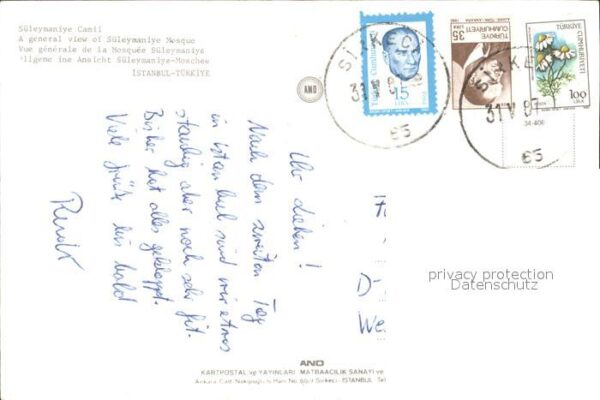 Süleymaniye Camii
A general view of Süleymaniye Mosque
Vue générale de la Mosquée Süleymaniye
ligeme ine Ansicht Süleymaniye-Moschee
İSTANBUL-TÜRKİYE
AND
SİRKECİ
31 V 8
65
15
LİRA
35
TÜRKİYE
CUMHURİYETİ
TÜRKİYE
CUMHURİYETİ
100
LİRA
34-406
31 V 87
65
Ihr Lieben!
Nach dem zweiten Tag
in Istanbul sind wir etwas
staubig aber noch sehr fit.
Bisher hat alles geklappt.
Viele Grüße bis bald
F
D
We
privacy protection
Datenschutz
AND
KARTPOSTAL ve YAYINLARI MATBAACILIK SANAYİ ve
Ankara Cad. Han No. Sirkeci - İSTANBUL Tel